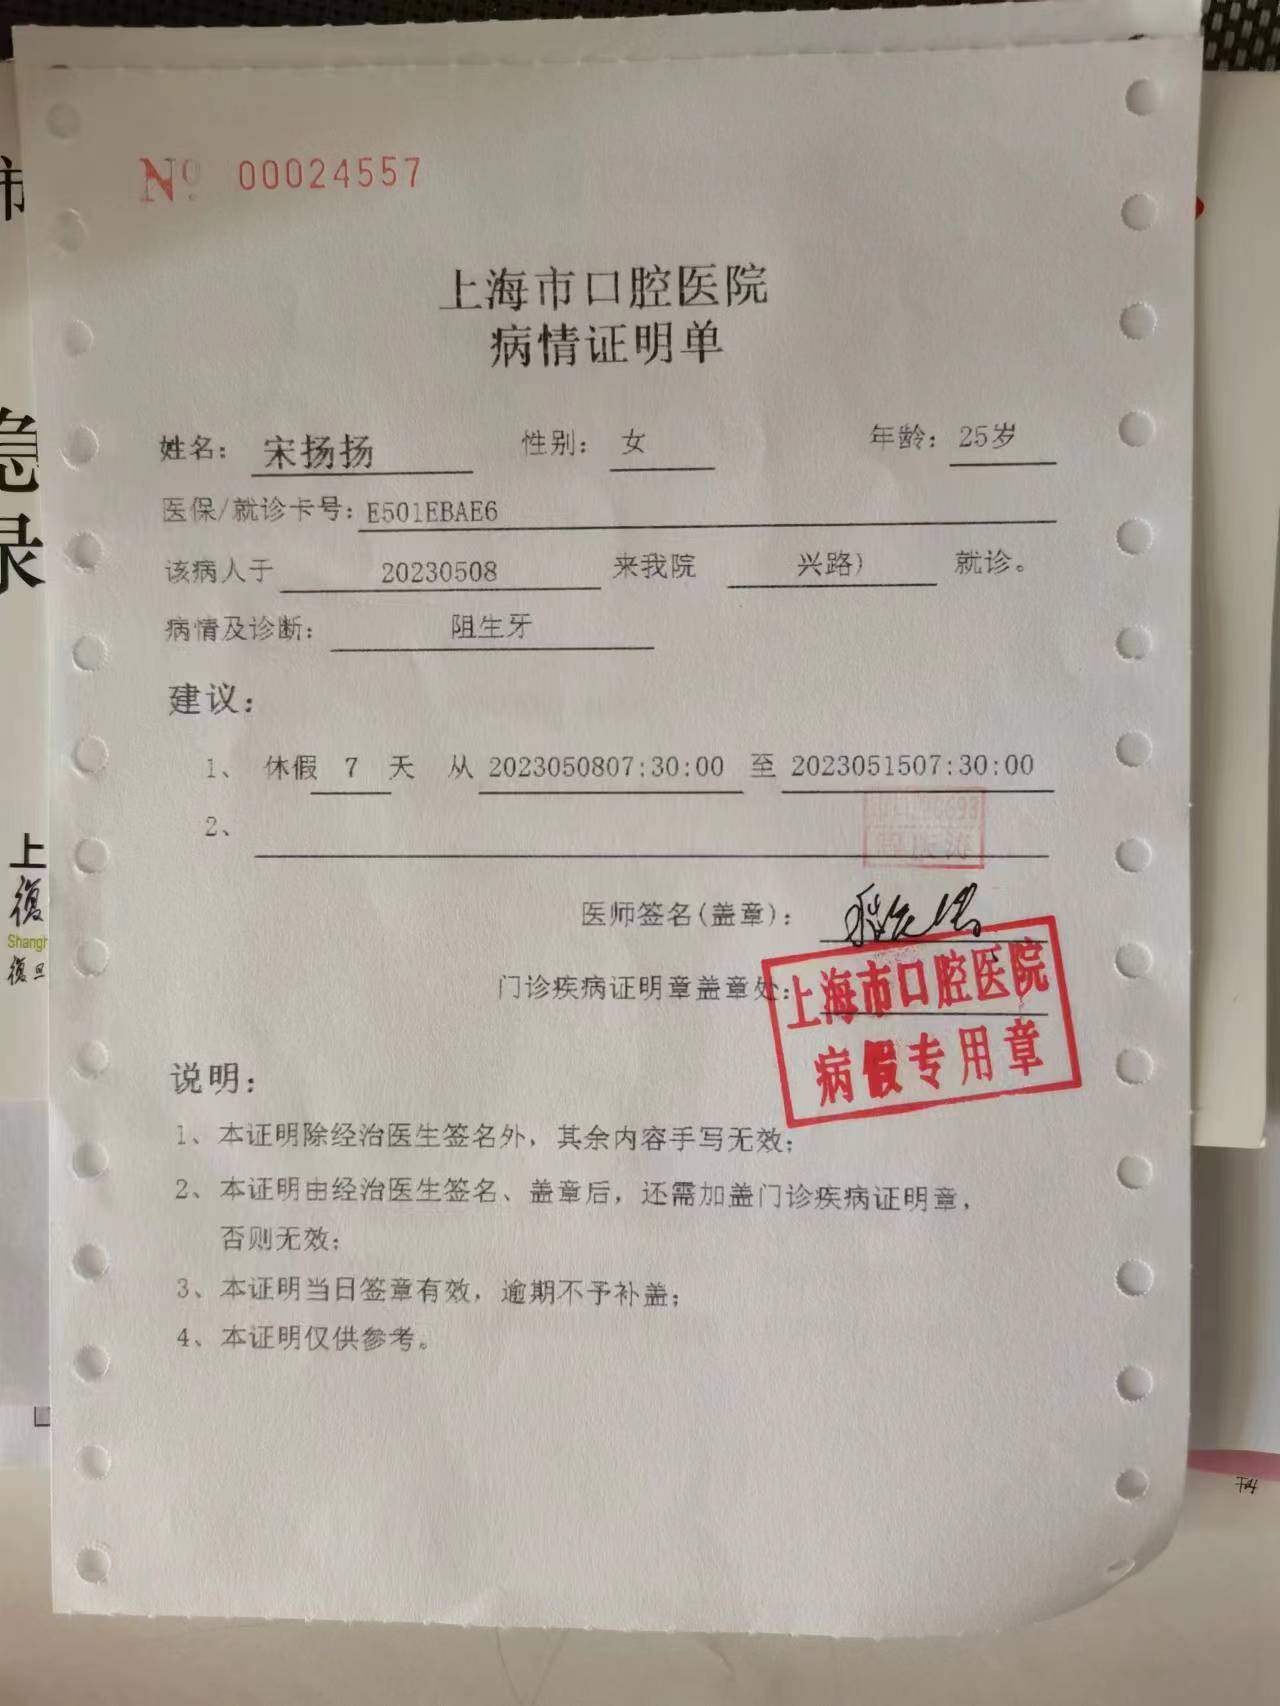 № 00024557
上海市口腔医院
病情证明单
姓名： 宋扬扬 性别： 女 年龄：25岁
医保/就诊卡号：E501EBAE6
该病人于 20230508 来我院 兴路） 就诊。
病情及诊断： 阻生牙
建议：
1、 休假 7 天 从 2023050807:30:00 至 2023051507:30:00
2、
医师签名(盖章)：
门诊疾病证明章盖章处：
上海市口腔医院
病假专用章
说明：
1、本证明除经治医生签名外，其余内容手写无效；
2、本证明由经治医生签名、盖章后，还需加盖门诊疾病证明章，
否则无效；
3、本证明当日签章有效，逾期不予补盖；
4、本证明仅供参考。
市
急
录
上
復
Shangh
復旦